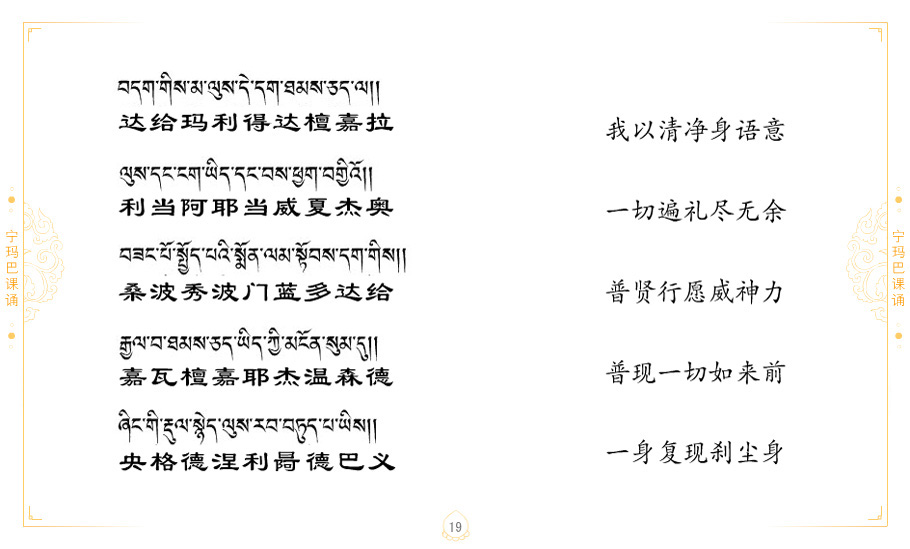 བདག་གིས་མ་ལུས་དེ་དག་ཐམས་ཅད་ལ།།
达给玛利得达檀嘉拉
我以清净身语意
ལུས་དང་ངག་ཡིད་དང་བས་ཕྱག་བགྱིའོ།།
利当阿耶当威夏杰奥
一切遍礼尽无余
བཟང་པོ་སྤྱོད་པའི་སྨོན་ལམ་སྟོབས་དག་གིས།།
桑波秀波门蓝多达给
普贤行愿威神力
རྒྱལ་བ་ཐམས་ཅད་ཡིད་ཀྱི་མངོན་སུམ་དུ།།
嘉瓦檀嘉耶杰温森德
普现一切如来前
ཞིང་གི་རྡུལ་སྙེད་ལུས་རབ་བཏུད་པ་ཡིས།།
央格德涅利德巴义
一身复现刹尘身
宁玛巴课诵
宁玛巴课诵
19